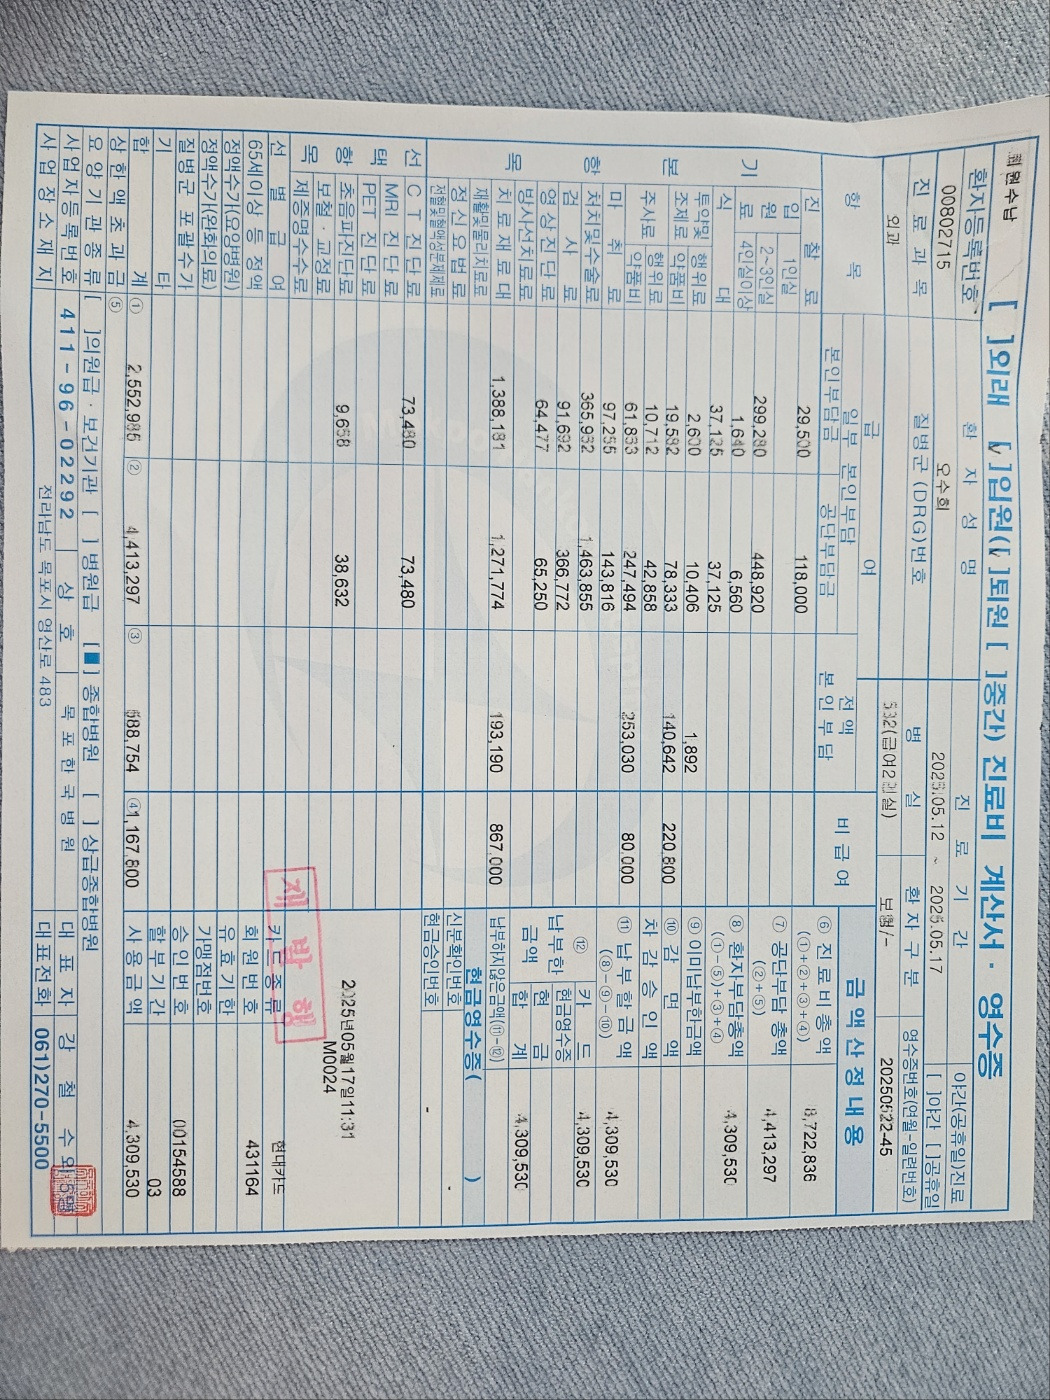 퇴원수납
[ ]외래 [√]입원([√]퇴원 [ ]중간) 진료비 계산서 · 영수증
환자등록번호 환 자 성 명 진 료 기 간 야간(공휴일)진료
00802715 오수희 2025.05.12 ~ 2025.05.17 [ ]야간 [ ]공휴일
진 료 과 목 질병군 (DRG)번호 병 실 환 자 구 분 영수증번호(연월-일련번호)
외과 532(급여2인실) 보험/- 20250522-45
항 목 급 여 비 급 여 금 액 산 정 내 용
일부 본인부담 전 액 본 인 부 담
본인부담금 공단부담금
진 찰 료 29,500 118,000
입 원 료 1인실
2~3인실 299,280 448,920
4인실이상 1,640 6,560
식 대 37,125 37,125
투약및 조제료 행위료 2,600 10,406 1,892
약품비 19,582 78,333 140,642 220,800
주사료 행위료 10,712 42,858
약품비 61,833 247,494 253,030 80,000
마 취 료 97,255 143,816
처치및수술료 365,952 1,463,855
검 사 료 91,692 366,772
영상진단료 64,477 65,250
방사선치료료
치료재료대 1,388,181 1,271,774 193,190 867,000
재활및물리치료료
정신요법료
전혈및혈액성분제제료
기 본 항 목
선 택 항 목
C T 진단료 73,480 73,480
MRI 진단료
PET 진단료
초음파진단료 9,658 38,632
보철·교정료
제증명수수료
선 별 급 여
65세이상 등 정액
정액수가(요양병원)
정액수가(완화의료)
질병군 포괄수가
기 타
합 계 ① 2,552,985 ② 4,413,297 ③ 588,754 ④1,167,800
상한액초과금 ⑤
⑥ 진료비총액 (①+②+③+④) 8,722,836
⑦ 공단부담 총액 (②+⑤) 4,413,297
⑧ 환자부담총액 (①-⑤)+③+④ 4,309,530
⑨ 이미납부한금액
⑩ 감 면 액
차 감 승 인 액
⑪ 납 부 할 금 액 (⑧-⑨-⑩) 4,309,530
⑫ 납부한 금액 카 드 4,309,530
현금영수증
현 금
합 계 4,309,530
납부하지않은금액(⑪-⑫)
현금영수증( )
신분확인번호 -
현금승인번호 -
2025년05월17일11:31
M0024
재 발 행
카드종류 현대카드
회원번호 431164
유효기한
가맹점번호
승인번호 00154588
할부기간 03
사용금액 4,309,530
요양기관종류 [ ]의원급·보건기관 [ ] 병원급 [■] 종합병원 [ ] 상급종합병원
사업자등록번호 411-96-02292 상 호 목포한국병원 대 표 자 강 철 수
사업장소재지 전라남도 목포시 영산로 483 대표전화 061)270-5500